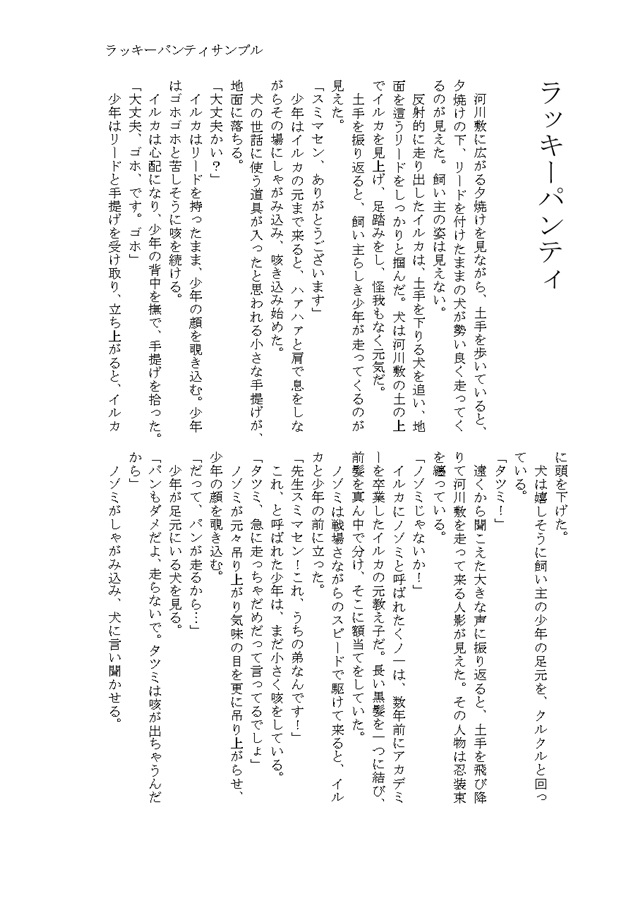 ラッキーパンティサンプル
ラッキーパンティ
河川敷に広がる夕焼けを見ながら、土手を歩いていると、
夕焼けの下、リードを付けたままの犬が勢い良く走ってく
るのが見えた。飼い主の姿は見えない。
反射的に走り出したイルカは、土手を下りる犬を追い、地
面を這うリードをしっかりと掴んだ。犬は河川敷の土の上
でイルカを見上げ、足踏みをし、怪我もなく元気だ。
土手を振り返ると、飼い主らしき少年が走ってくるのが
見えた。
「スミマセン、ありがとうございます」
少年はイルカの元まで来ると、ハァハァと肩で息をしな
がらその場にしゃがみ込み、咳き込み始めた。
犬の世話に使う道具が入ったと思われる小さな手提げが、
地面に落ちる。
「大丈夫かい？」
イルカはリードを持ったまま、少年の顔を覗き込む。少年
はゴホゴホと苦しそうに咳を続ける。
イルカは心配になり、少年の背中を撫で、手提げを拾った。
「大丈夫、ゴホ、です。ゴホ」
少年はリードと手提げを受け取り、立ち上がると、イルカ
に頭を下げた。
犬は嬉しそうに飼い主の少年の足元を、クルクルと回っ
ている。
「タツミ！」
遠くから聞こえた大きな声に振り返ると、土手を飛び降
りて河川敷を走って来る人影が見えた。その人物は忍装束
を纏っている。
「ノゾミじゃないか！」
イルカにノゾミと呼ばれたくノ一は、数年前にアカデミ
ーを卒業したイルカの元教え子だ。長い黒髪を一つに結び、
前髪を真ん中で分け、そこに額当てをしていた。
ノゾミは戦場さながらのスピードで駆けて来ると、イル
カと少年の前に立った。
「先生スミマセン！これ、うちの弟なんです！」
これ、と呼ばれた少年は、まだ小さく咳をしている。
「タツミ、急に走っちゃだめだって言ってるでしょ」
ノゾミが元々吊り上がり気味の目を更に吊り上がらせ、
少年の顔を覗き込む。
「だって、パンが走るから…」
少年が足元にいる犬を見る。
「パンもダメだよ、走らないで。タツミは咳が出ちゃうんだ
から」
ノゾミがしゃがみ込み、犬に言い聞かせる。